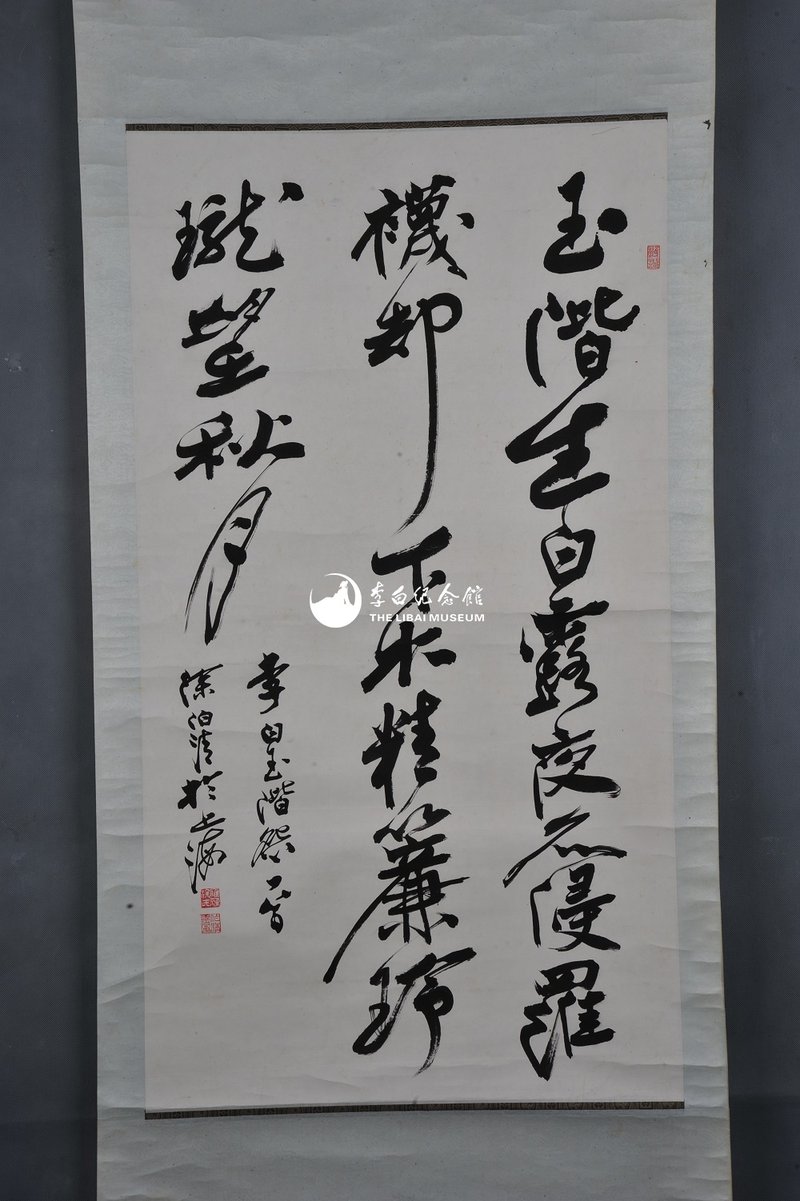 玉階生白露夜久侵羅
襪却下水精簾玲
瓏望秋月
李白玉階怨一首
徐伯清於上海
李白纪念館
THE LIBAI MUSEUM